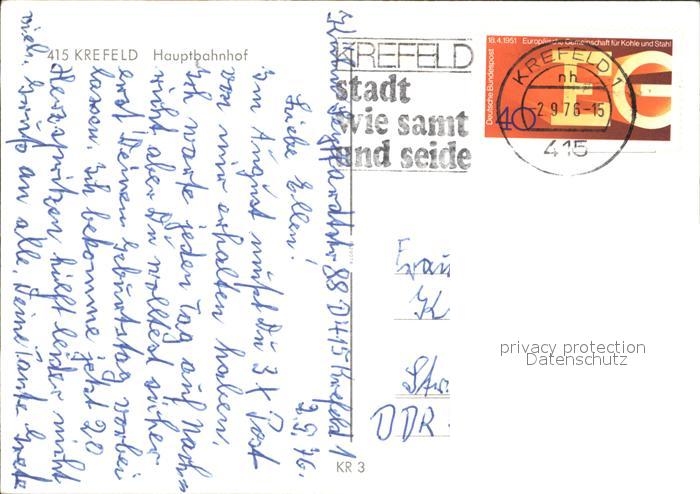 415 KREFELD Hauptbahnhof
KREFELD
stadt
wie samt
und seide
18.4.1951 Europäische Gemeinschaft für Kohle und Stahl
Deutsche Bundespost
40
KREFELD 1
nh
-2.9.76-15
415
88 D 415 Krefeld 1
2.9.76.
Liebe Ellen!
Im August mußt Du 3 x Post
von mir erhalten haben.
Ich warte jeden Tag auf Nach=
richt, aber Du wolltest sicher
erst Deinen Geburtstag vorbei
lassen. Ich bekomme jetzt 20
Herzspritzen, hilft leider nicht
viel. Gruß an alle, Deine Tante Grete
Frau
K
Str.
DDR
privacy protection
Datenschutz
KR 3